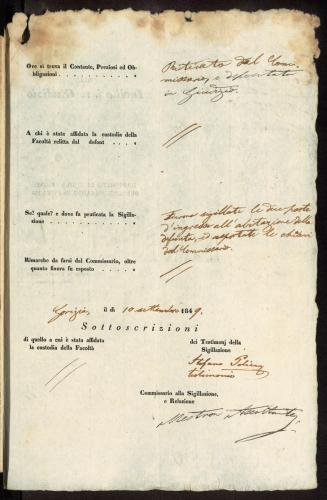 Ove si trova il Contante, Preziosi ed Ob-
bligazioni . . . . . . . . . .
Ritirato dal Com-
missario, e depositato
in Giudizio.
A chi è stata affidata la custodia della
Facoltà relitta dal defont . . . .
//
Se? quale? e dove fu praticata la Sigilla-
zione . . . . . . . . . . .
Furono sigillate le due porte
d'ingresso all'abitazione della
defunta, ed asportate le chiavi
dal Commissario.
Rimarche da farsi dal Commissario, oltre
quanto finora fu esposto . . . . .
//
Gorizia il dì 10 settembre 1849.
Sottoscrizioni
di quello a cui è stata affidata
la custodia della Facoltà
//
dei Testimonj della
Sigillazione
Stefano
testimonio
Commissario alla Sigillazione,
e Relazione